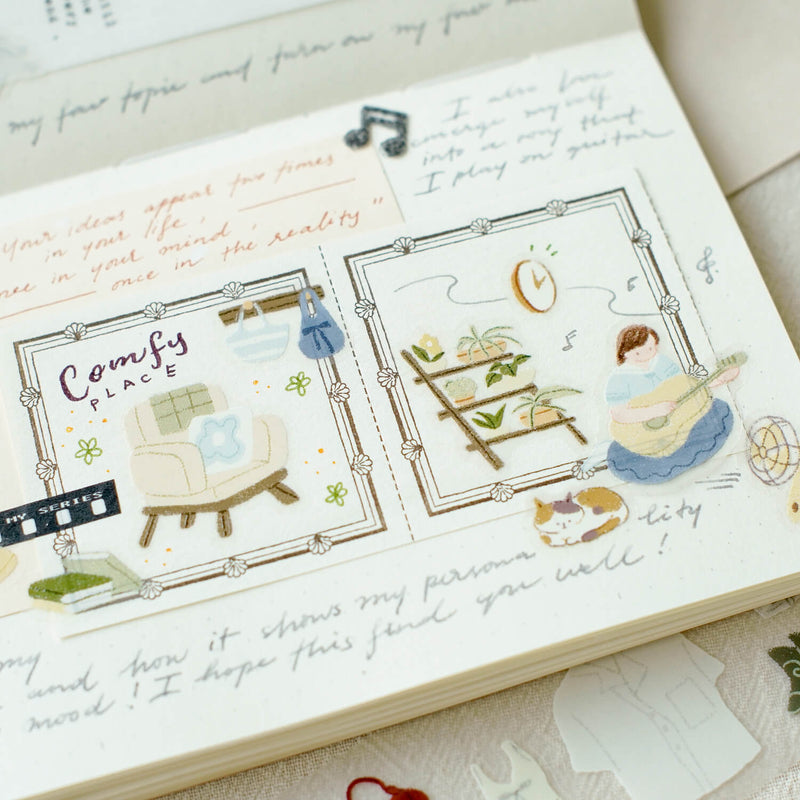 my four topic and turn on my four
I also love
emerge myself
into a song that
I play on guitar
Your ideas appear two times
in your life,
once in your mind,
once in the reality"
Comfy
PLACE
MY SERIES
my
and how it shows my persona lity
mood! I hope this find you well!